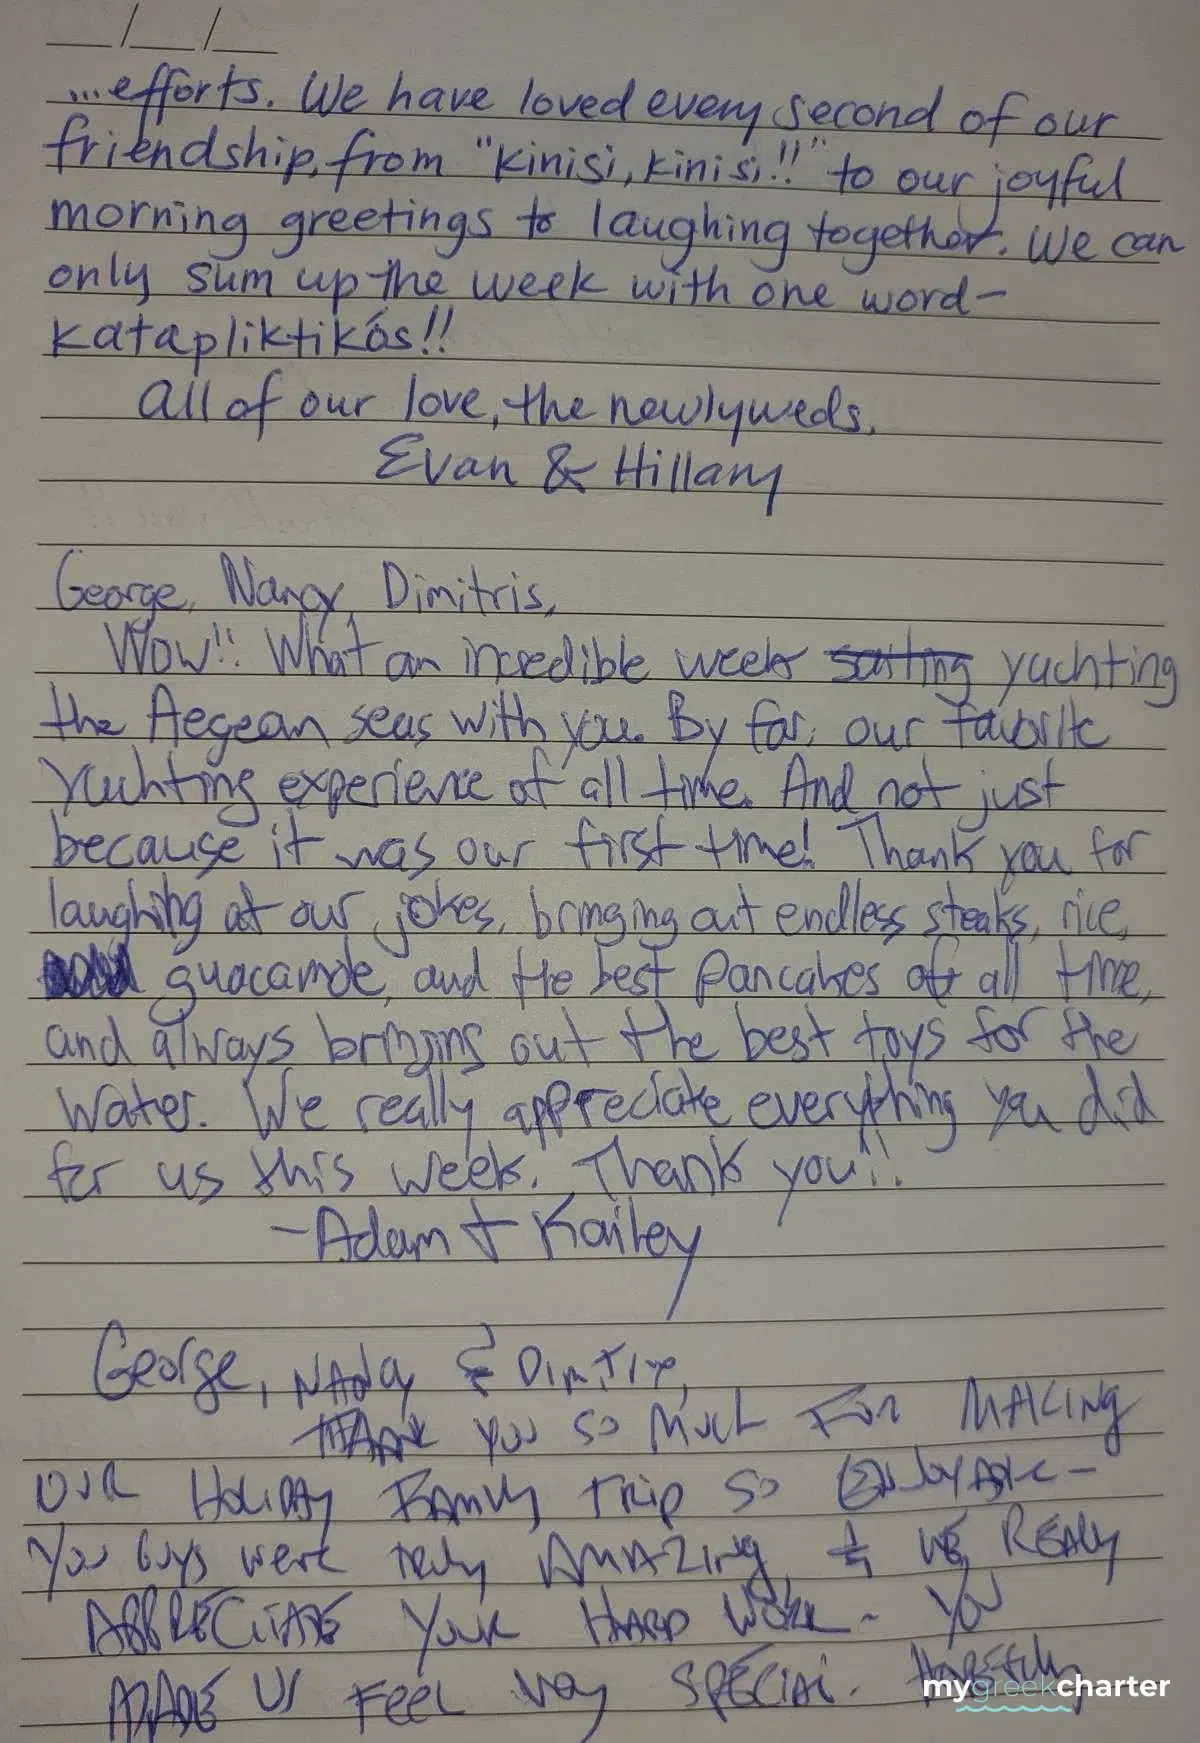 __/__/__
...efforts. We have loved every second of our
friendship, from "kinisi, kinisi!!" to our joyful
morning greetings to laughing together. We can
only sum up the week with one word-
katapliktikós!!
All of our love, the newlyweds,
Evan & Hillary
George, Nancy, Dimitris,
Wow!! What an incredible week yachting
the Aegean seas with you. By far, our favorite
yachting experience of all time. And not just
because it was our first time! Thank you for
laughing at our jokes, bringing out endless steaks, rice,
guacamole, and the best pancakes of all time,
and always bringing out the best toys for the
water. We really appreciate everything you did
for us this week. Thank you!!
-Adam + Kailey
George, &
Thank you so much for making
our Holiday Family trip so enjoyable-
You guys were truly Amazing & we really
Appreciate your Hard Work- You
made us feel very special. Hopefully
mygreekcharter